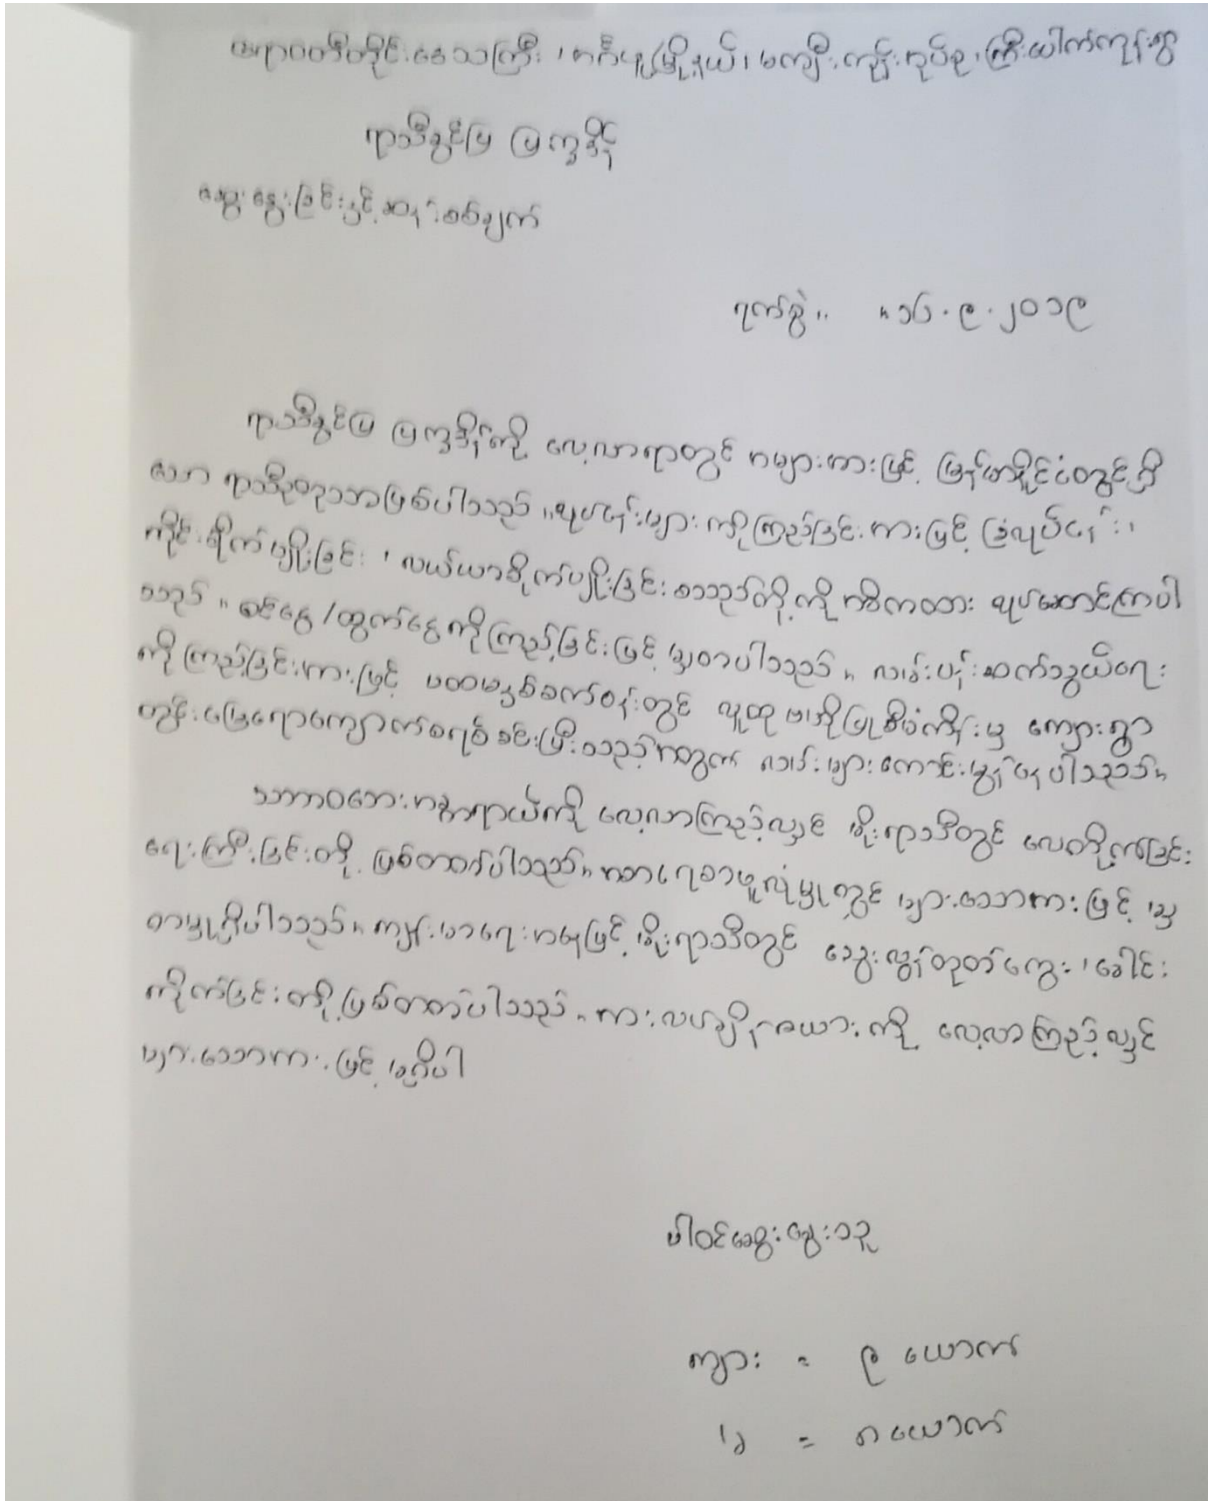 ဧရာဝတီတိုင်းဒေသကြီး၊ ဘိုကလေးမြို့နယ်၊ မကျီးကျုံးအုပ်စု၊ ကြီးယောက်ကုန်းရွာ
ရာသီခွင်ပြ ပြက္ခဒိန်
ဆွေးနွေးခြင်းနှင့်ဆန်းစစ်ချက်
ရက်စွဲ။ ။ ၁၆.၉.၂၀၁၉
ရာသီခွင်ပြ ပြက္ခဒိန်ကို လေ့လာရာတွင် အများအားဖြင့် မြန်မာနိုင်ငံတွင်ရှိ
သော ရာသီဥတုသာဖြစ်ပါသည်။ လုပ်ငန်းများ ကိုကြည့်ခြင်းအားဖြင့် ခြံလုပ်ငန်း၊
ကိုင်းစိုက်ပျိုးခြင်း၊ လယ်ယာစိုက်ပျိုးခြင်း စသည်တို့ကို အဓိကထား လုပ်ဆောင်ကြပါ
သည်။ ဝင်ငွေ/ထွက်ငွေကိုကြည့်ခြင်းဖြင့် မျှတပါသည်။ လမ်းပန်းဆက်သွယ်ရေး
ကိုကြည့်ခြင်းအားဖြင့် ပထမနှစ်စက်ဝန်းတွင် လူထုဗဟိုပြုစီမံကိန်းမှ ကျေးရွာ
တွင်းမြေရောကျောက်စရစ်ခင်းပြီးသည့်အတွက် လမ်းများကောင်းမွန်နေပါသည်။
သဘာဝဘေးအန္တရာယ်ကို လေ့လာကြည့်လျှင် မိုးရာသီတွင် လေတိုက်ခြင်း
ရေကြီးခြင်းတို့ ဖြစ်တတ်ပါသည်။ အစားရေစာဖူလုံမှုတွင် များသောအားဖြင့် မျှ
တမှုရှိပါသည်။ ကျန်းမာရေးအနေဖြင့် မိုးရာသီတွင် သွေးလွန်တုတ်ကွေး၊ ခေါင်း
ကိုက်ခြင်းတို့ဖြစ်တတ်ပါသည်။ အားလပ်ချိန်ဇယားကို လေ့လာကြည့်လျှင်
များသောအားဖြင့် မရှိပါ
ပါဝင်ဆွေးနွေးသူ
ကျား = ၉ ယောက်
မ = ၈ ယောက်